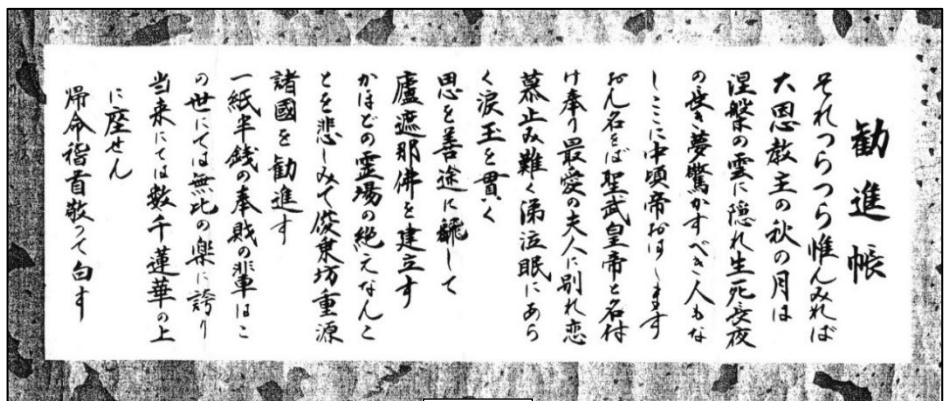 勧進帳
それつらつら惟んみれば
大恩教主の秋の月は
涅槃の雲に隠れ生死長夜
の長き夢驚かすべき人もな
しここに中頃帝おはします
おん名をば聖武皇帝と名付
け奉り最愛の夫人に別れ恋
慕止み難く涕泣眠にあら
く涙玉を貫く
思を善途に飜して
盧遮那佛を建立す
かほどの霊場の絶えなんこ
とを悲しみて俊乗坊重源
諸國を勧進す
一紙半銭の奉財の輩はこ
の世にては無比の楽に誇り
当来にては数千蓮華の上
に座せん
帰命稽首敬って白す